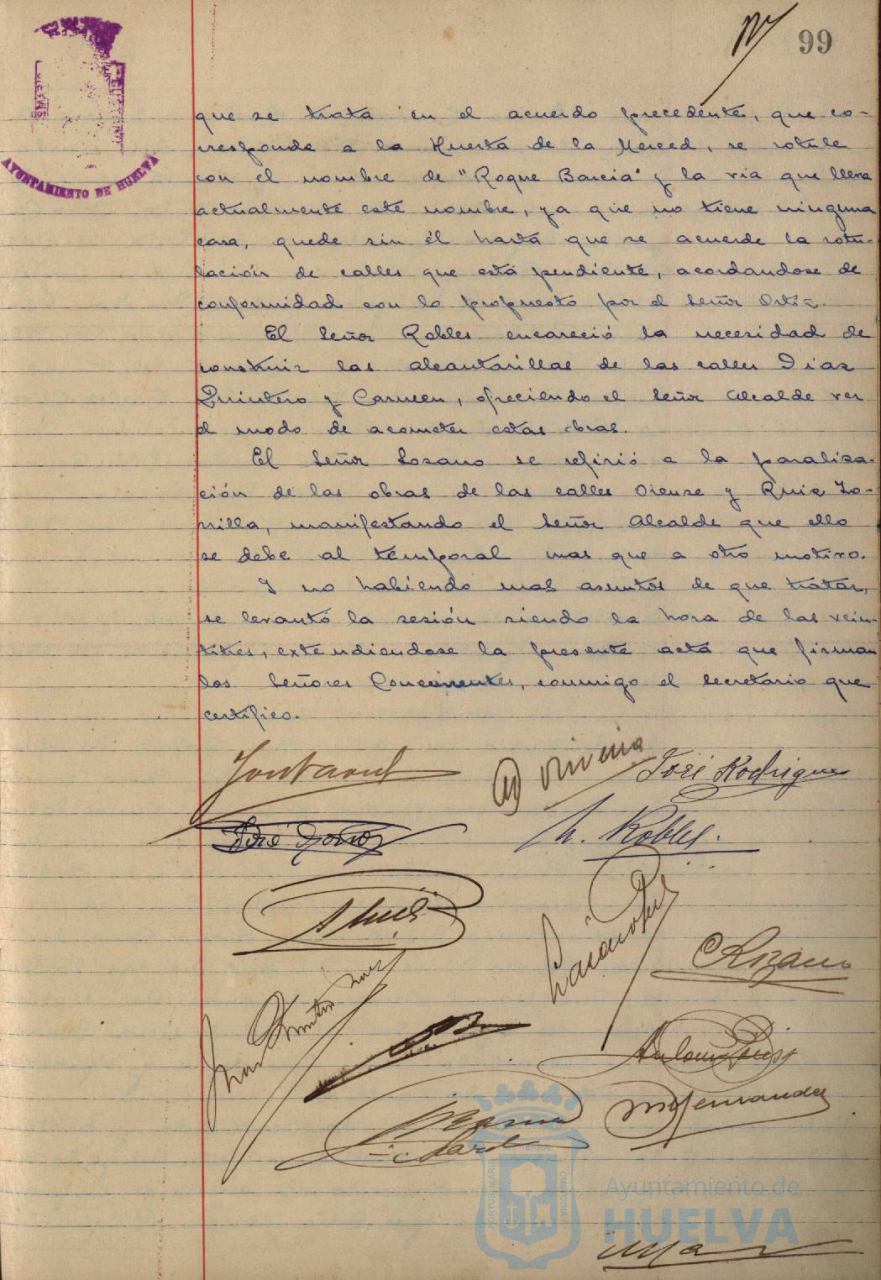 99
AYUNTAMIENTO DE HUELVA
que se trata en el acuerdo precedente, que co-
rresponde a la Huerta de la Merced, se rotule
con el nombre de "Roque Barcia" y la via que lleva
actualmente este nombre, ya que no tiene ninguna
casa, quede sin él hasta que se acuerde la rotu-
lación de calles que está pendiente, acordandose de
conformidad con lo propuesto por el Señor Ortiz.
El Señor Robles encareció la necesidad de
construir las alcantarillas de las calles Diaz
Quintero y Carmen, ofreciendo el Señor Alcalde ver
el modo de acometer estas obras.
El Señor Lozano se refirió a la paraliza-
ción de las obras de las calles Orense y Ruiz Zo-
rrilla, manifestando el Señor Alcalde que ello
se debe al temporal mas que a otro motivo.
Y no habiendo mas asuntos de que tratar,
se levantó la sesión siendo la hora de las vein-
titres, extendiendose la presente acta que firman
los Señores Concurrentes, conmigo el Secretario que
certifico.
José Rodriguez
Robles
Ayuntamiento de
HUELVA